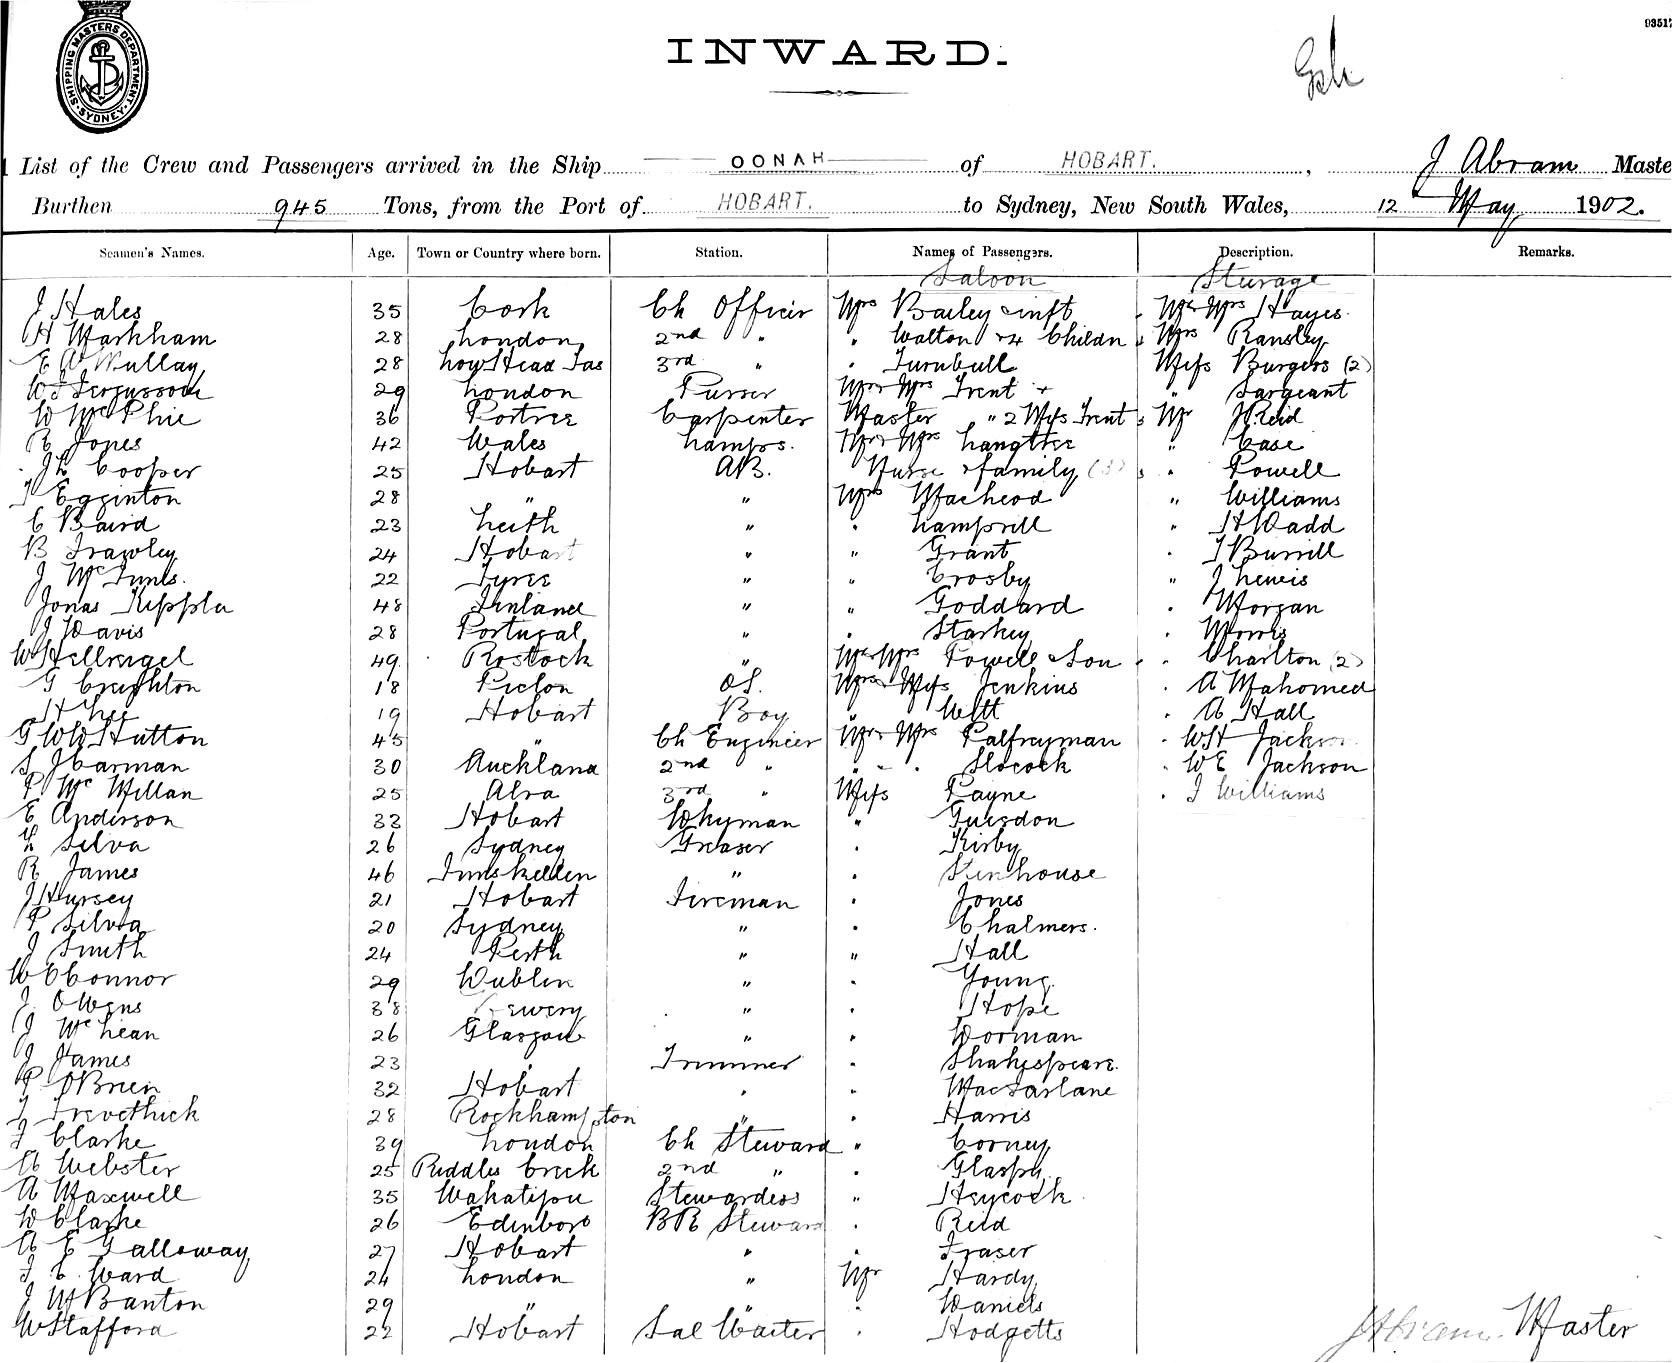 SHIPPING MASTERS DEPARTMENT. SYDNEY
INWARD.
List of the Crew and Passengers arrived in the Ship OONAH of HOBART. , J Abram Maste
Burthen 945 Tons, from the Port of HOBART. to Sydney, New South Wales, 12 May 1902.
Seamen's Names. Age. Town or Country where born. Station. Names of Passengers. Description. Remarks.
Saloon Sturage
J Hales 35 Cork Ch Officer Mrs Bailey & inft Mr & Mrs Hayes.
H Markham 28 London 2nd " " Walton & 4 Childn Mrs Ransley
E W Mullay 28 Low Head Tas 3rd " " Turnbull Misses Burgess (2)
W J Fergusson 29 London Purser Mr & Mrs Trent " Sargeant
W McPhie 36 Portree Carpenter Master " 2 Misses Trent Mr J Reid
R Jones 42 Wales Lamps. Mr & Mrs " Case
Cooper 25 Hobart AB. Nurse & family (3) " Powell
T Egginton 28 " " Mrs MacLeod " Williams
C Baird 23 Leith " " " H Dadd
B Frawley 24 Hobart " " Grant " T Burrill
J McInnes. 22 " " Crosby " J Lewis
Jonas 48 Finland " " Goddard " Morgan
J Davis 28 Portugal " " Starkey " Morris
W Hellreigel 49 Rostock " Mr & Mrs Powell & Son " Charlton (2)
G Creighton 18 Picton OS. Mrs & Miss Jenkins " A Mahomed
H Lee 19 Hobart Boy " Witt " A Hall
G W W Hutton 45 " Ch Engineer Mr & Mrs Palfreyman " WH Jackson
S J Carman 30 Auckland 2nd " " " Slocock " WE Jackson
P McMillan 25 Alva 3rd " Misses Payne " J Williams
E Anderson 33 Hobart Whyman " Guesdon
Silva 26 Sydney Greaser " Kirby
R James 46 Inniskillen " " Stenhouse
J Hursey 21 Hobart Fireman " Jones
P Silva 20 Sydney " " Chalmers.
J Smith 24 Perth " " Hall
W O'Connor 29 Dublin " " Young.
J Owens 38 Newery " " Hope
J McLean 26 Glasgow " " Dorman
J James 23 " Trimmer " Shakespeare.
P O'Brien 32 Hobart " " MacFarlane
J Trevethick 28 Rockhampton " " Harris
J Clarke 39 London Ch Steward " Corney
A Webster 25 Riddles Creek 2nd " " Glaspy
A Maxwell 35 Wakatipu Stewardess " Heycock
W Clarke 26 Edinboro BR Steward " Reid
A E Galloway 27 Hobart " " Fraser
J C Ward 24 London " Mr Hardy
J M Banton 29 " " Daniels
W Stafford 22 Hobart Sal Waiter " Hodgetts
J Abram. Master